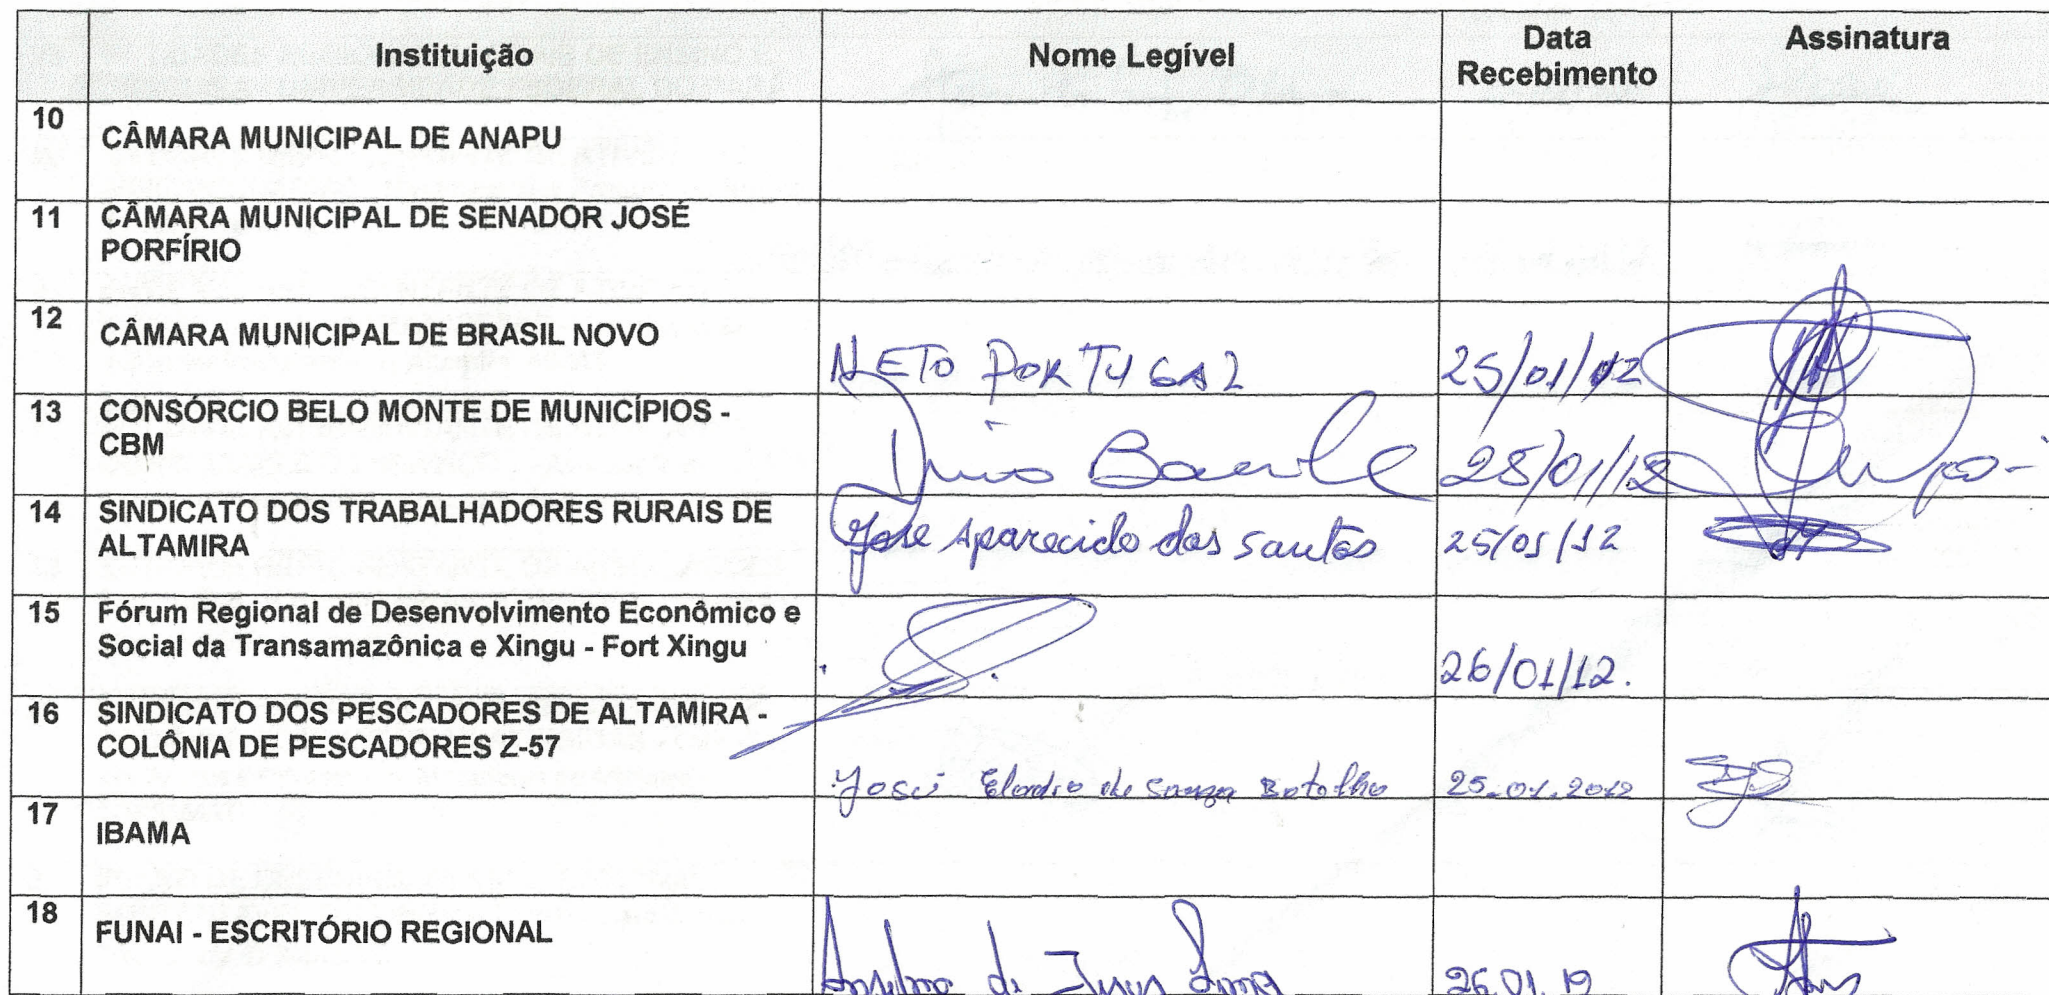 Instituição Nome Legível Data Recebimento Assinatura
10 CÂMARA MUNICIPAL DE ANAPU
11 CÂMARA MUNICIPAL DE SENADOR JOSÉ
PORFÍRIO
12 CÂMARA MUNICIPAL DE BRASIL NOVO NETO PORTUGAL 25/01/12
13 CONSÓRCIO BELO MONTE DE MUNICÍPIOS -
CBM 25/01/12
14 SINDICATO DOS TRABALHADORES RURAIS DE
ALTAMIRA Jose Aparecido dos Santos 25/01/12
15 Fórum Regional de Desenvolvimento Econômico e
Social da Transamazônica e Xingu - Fort Xingu 26/01/12.
16 SINDICATO DOS PESCADORES DE ALTAMIRA -
COLÔNIA DE PESCADORES Z-57
José de Souza Botelho 25.01.2012
17 IBAMA
18 FUNAI - ESCRITÓRIO REGIONAL Anselmo de Jesus 26.01.12